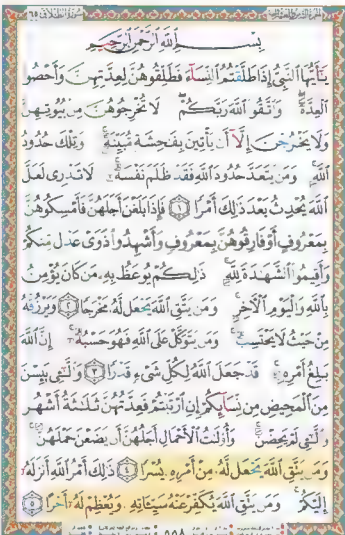 سورة الطلاق ٦٥
بِسْمِ اللَّهِ الرَّحْمَٰنِ الرَّحِيمِ
يَٰٓأَيُّهَا ٱلنَّبِىُّ إِذَا طَلَّقْتُمُ ٱلنِّسَآءَ فَطَلِّقُوهُنَّ لِعِدَّتِهِنَّ وَأَحْصُوا۟
ٱلْعِدَّةَ وَٱتَّقُوا۟ ٱللَّهَ رَبَّكُمْ لَا تُخْرِجُوهُنَّ مِنۢ بُيُوتِهِنَّ
وَلَا يَخْرُجْنَ إِلَّآ أَن يَأْتِينَ بِفَٰحِشَةٍ مُّبَيِّنَةٍ وَتِلْكَ حُدُودُ
ٱللَّهِ وَمَن يَتَعَدَّ حُدُودَ ٱللَّهِ فَقَدْ ظَلَمَ نَفْسَهُۥ لَا تَدْرِى لَعَلَّ
ٱللَّهَ يُحْدِثُ بَعْدَ ذَٰلِكَ أَمْرًا ١ فَإِذَا بَلَغْنَ أَجَلَهُنَّ فَأَمْسِكُوهُنَّ
بِمَعْرُوفٍ أَوْ فَارِقُوهُنَّ بِمَعْرُوفٍ وَأَشْهِدُوا۟ ذَوَىْ عَدْلٍ مِّنكُمْ
وَأَقِيمُوا۟ ٱلشَّهَٰدَةَ لِلَّهِ ذَٰلِكُمْ يُوعَظُ بِهِۦ مَن كَانَ يُؤْمِنُ
بِٱللَّهِ وَٱلْيَوْمِ ٱلْءَاخِرِ وَمَن يَتَّقِ ٱللَّهَ يَجْعَل لَّهُۥ مَخْرَجًا ٢ وَيَرْزُقْهُ
مِنْ حَيْثُ لَا يَحْتَسِبُ وَمَن يَتَوَكَّلْ عَلَى ٱللَّهِ فَهُوَ حَسْبُهُۥٓ إِنَّ ٱللَّهَ
بَٰلِغُ أَمْرِهِۦ قَدْ جَعَلَ ٱللَّهُ لِكُلِّ شَىْءٍ قَدْرًا ٣ وَٱلَّٰٓـِٔى يَئِسْنَ
مِنَ ٱلْمَحِيضِ مِن نِّسَآئِكُمْ إِنِ ٱرْتَبْتُمْ فَعِدَّتُهُنَّ ثَلَٰثَةُ أَشْهُرٍ
وَٱلَّٰٓـِٔى لَمْ يَحِضْنَ وَأُو۟لَٰتُ ٱلْأَحْمَالِ أَجَلُهُنَّ أَن يَضَعْنَ حَمْلَهُنَّ
وَمَن يَتَّقِ ٱللَّهَ يَجْعَل لَّهُۥ مِنْ أَمْرِهِۦ يُسْرًا ٤ ذَٰلِكَ أَمْرُ ٱللَّهِ أَنزَلَهُۥٓ
إِلَيْكُمْ وَمَن يَتَّقِ ٱللَّهَ يُكَفِّرْ عَنْهُ سَيِّـَٔاتِهِۦ وَيُعْظِمْ لَهُۥٓ أَجْرًا ٥
٥٥٨